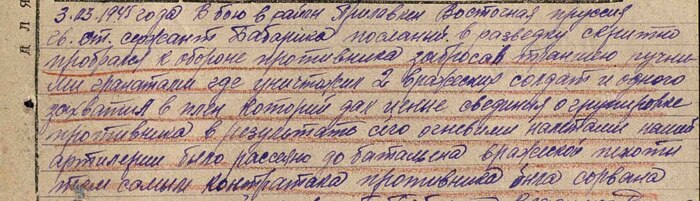 ДЛЯ
3.03.1945 года В бою в район Восточная пруссия
гв. ст. сержант Бабарика посланий в разведку скритно
пробрался к обороне противника забросав траншею ручни
ми гранатами где уничтожил 2 вражеских солдат и одного
захватил в плен который дал ценные сведения о групировке
противника в результате сего огневими налетами нашей
артилерии было рассеяно до батальена вражеской пехоти
тем самым контратака противника была сорвана